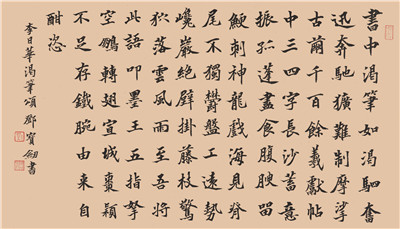 書中渴筆如渴驷奮
迅奔馳獷難制摩挲
古繭千百餘羲獻帖
中三四字長沙蓄意
振孤蓬盡食腹腴留
鯁刺神龍戲海見脊
尾不獨鬱盤工遠勢
巉巖絕壁掛藤枝驚
狖落雲風雨至吾將
此語叩墨王五指拏
空鵬轉翅宣城棗穎
不足存鐵腕由來自
酣恣
李日華渴筆頌 鄧寶劍書